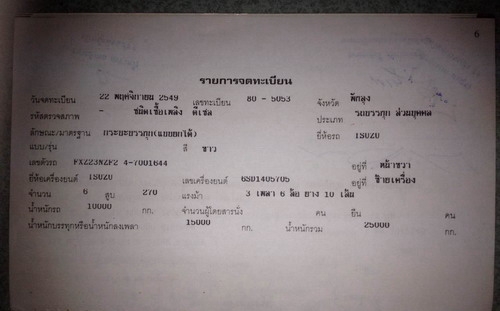 6
รายการจดทะเบียน
วันจดทะเบียน 22 พฤศจิกายน 2549 เลขทะเบียน 80 - 5053 จังหวัด พัทลุง
รหัสตรวจสภาพ - ชนิดเชื้อเพลิง ดีเซล ประเภท รถบรรทุก ส่วนบุคคล
ลักษณะ/มาตรฐาน กระบะบรรทุก(แบบยกได้) ยี่ห้อรถ ISUZU
แบบ/รุ่น สี ขาว
เลขตัวรถ FXZ23NZF2 4-7001644 อยู่ที่ หน้าขวา
ยี่ห้อเครื่องยนต์ ISUZU เลขเครื่องยนต์ 6SD1405705 อยู่ที่ ซ้ายเครื่อง
จำนวน 6 สูบ 270 แรงม้า 3 เพลา 6 ล้อ ยาง 10 เส้น
น้ำหนักรถ 10000 กก. จำนวนผู้โดยสารนั่ง คน ยืน คน
น้ำหนักบรรทุกหรือน้ำหนักลงเพลา 15000 กก. น้ำหนักรวม 25000 กก.